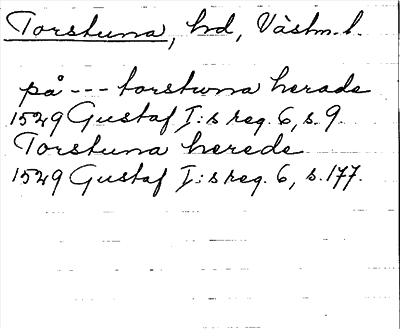 Torstuna, hd, Västm. l.
på --- torstuna herade
1529 Gustaf I:s reg. 6, s. 9.
Torstuna herede
1529 Gustaf I:s reg. 6, s. 177.